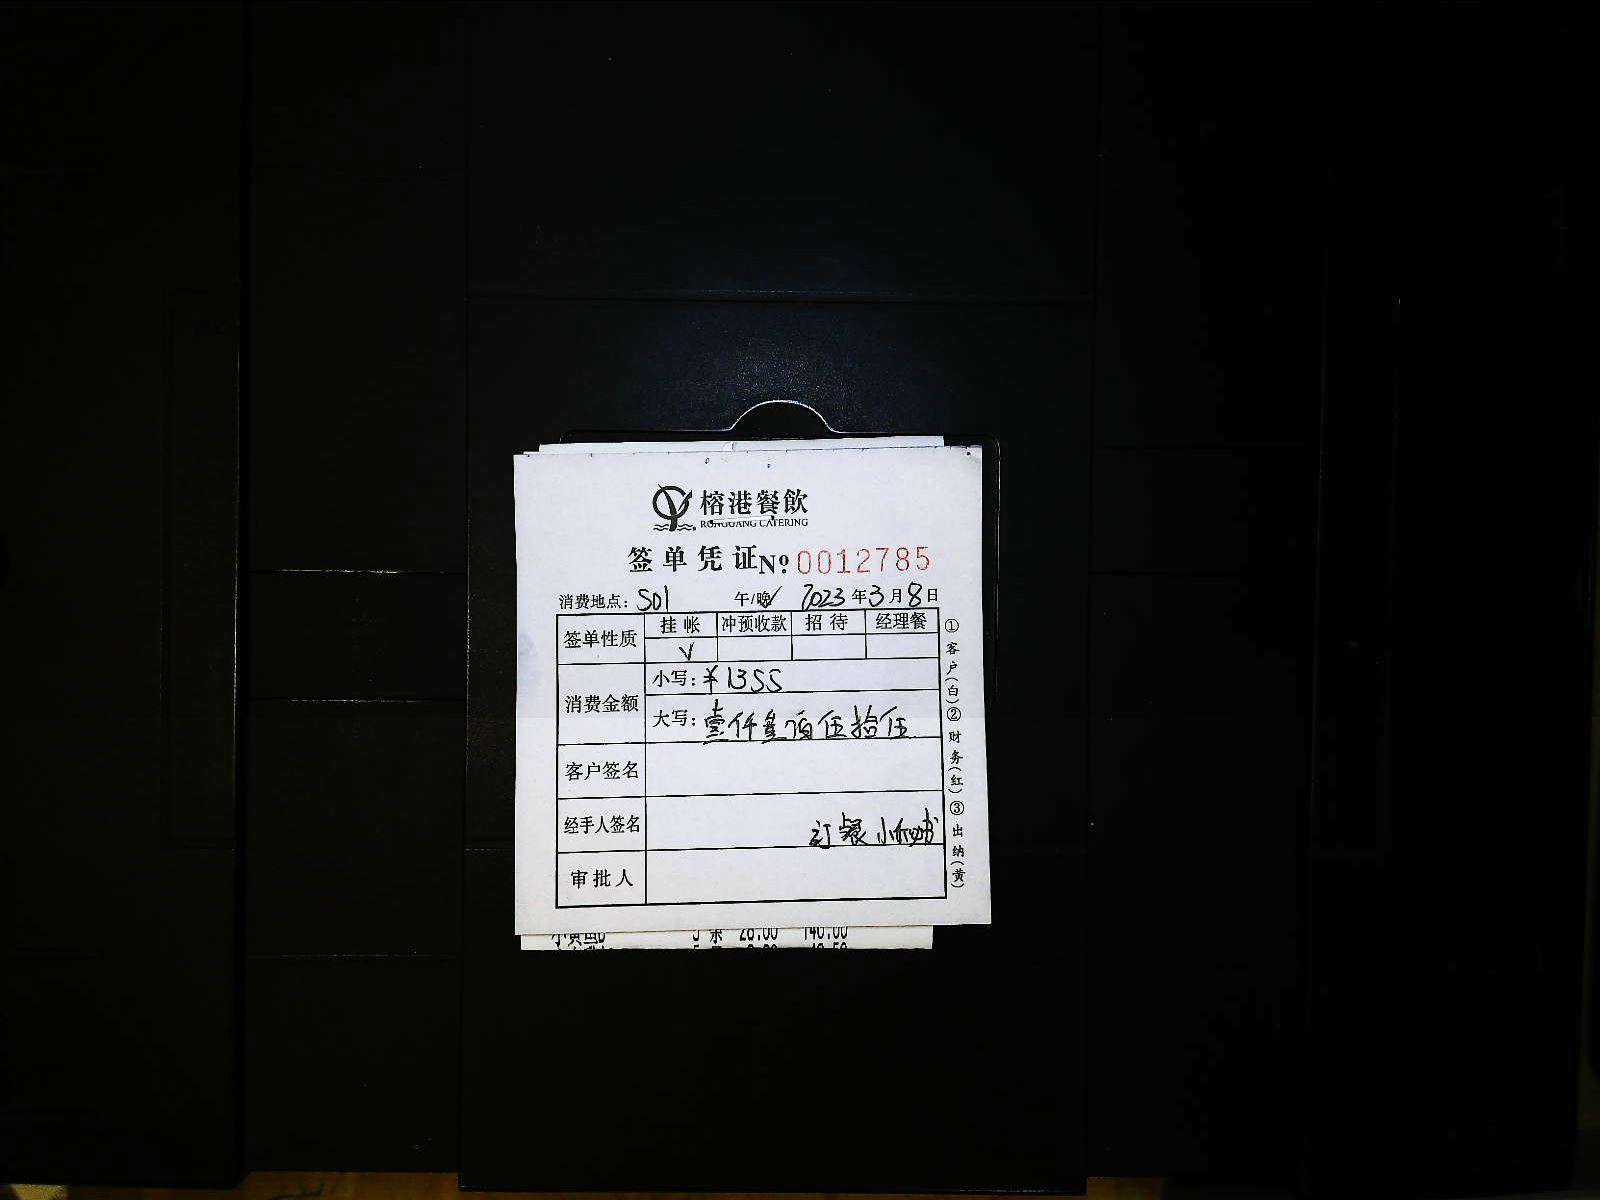 榕港餐飲
RONGGANG CATERING
签单凭证 Nº 0012785
消费地点: S01 午/晚✓ 2023年3月8日
签单性质 挂帐 冲预收款 招待 经理餐
√
消费金额 小写: ¥1355
大写: 壹仟叁佰伍拾伍
客户签名
经手人签名 订餐小秘书
审批人
①客户(白)②财务(红)③出纳(黄)
小黄鱼 5 条 28.00 140.00